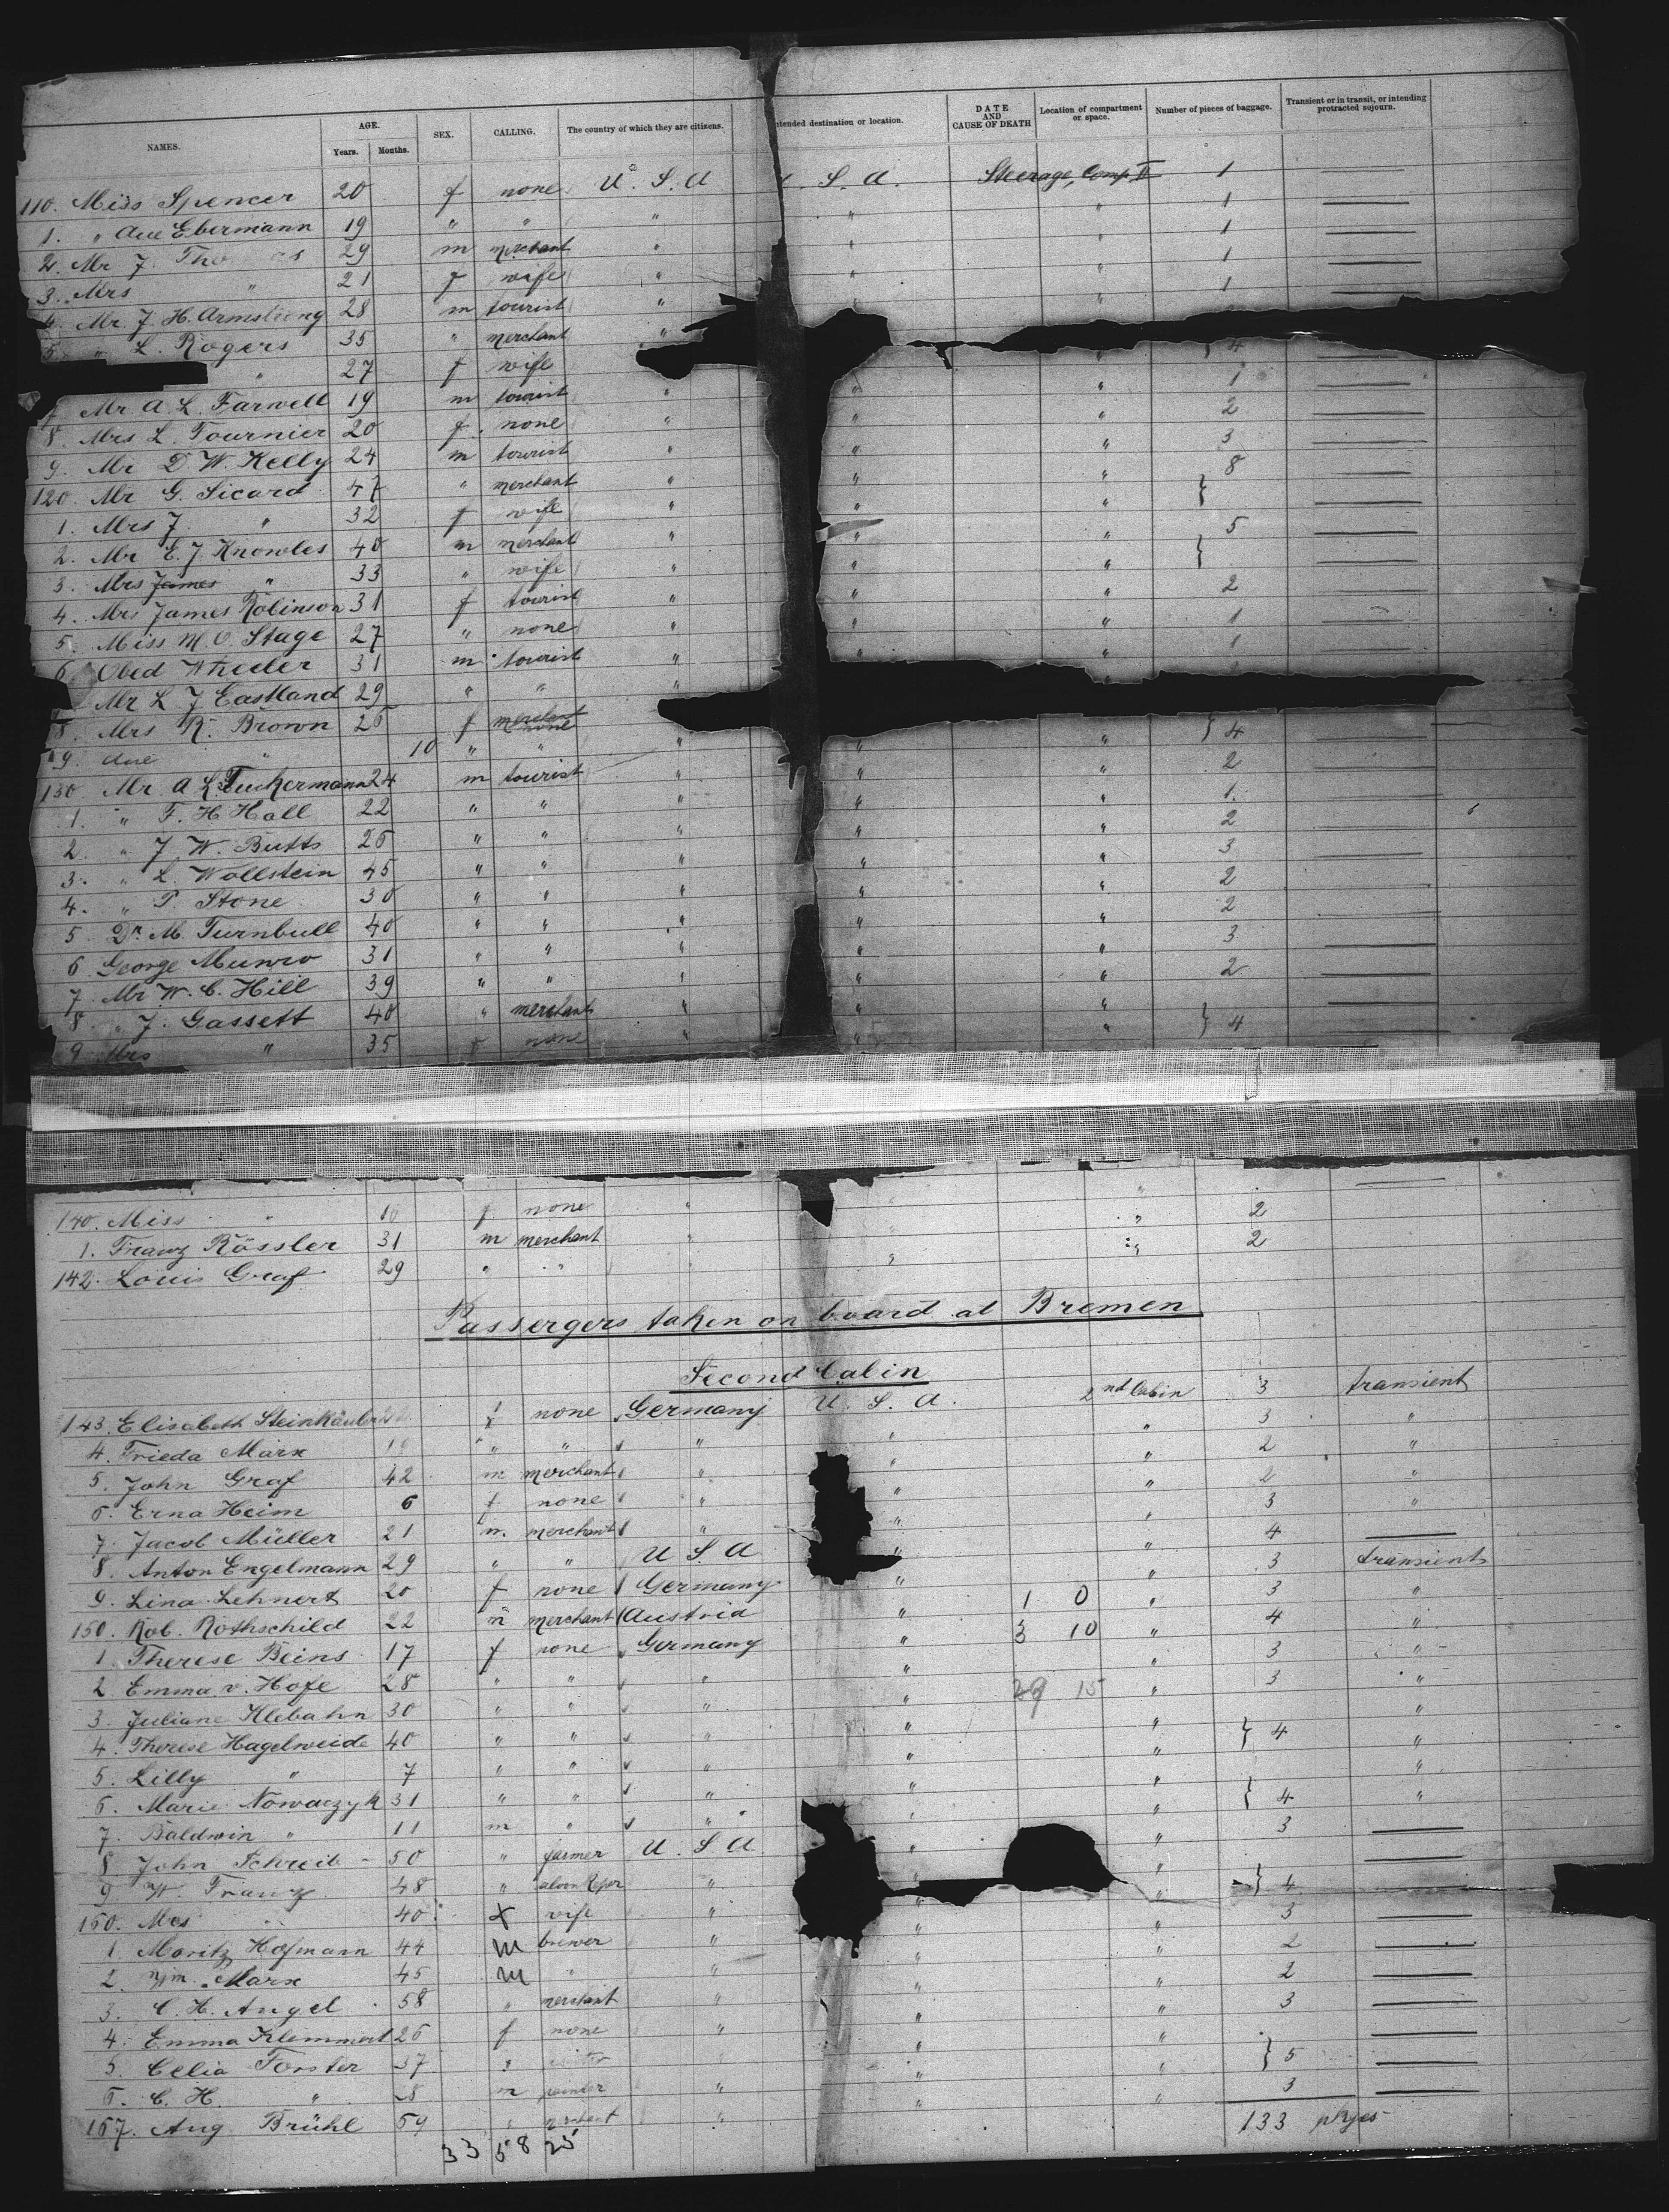 NAMES. AGE. Years. Months. SEX. CALLING. The country of which they are citizens. ntended destination or location. DATE AND CAUSE OF DEATH Location of compartment or space. Number of pieces of baggage. Transient or in transit, or intending protracted sojourn.
110. Miss Spencer 20 f none U. S. A S. A. Steerage, Comp. 1 —
1. " Ebermann 19 " " " " " 1 —
2. Mr J. Tho as 29 m merchant " " " 1 —
3. Mrs " 21 f wife " " " 1 —
4. Mr. J. H. Armstrong 28 m tourist " " " 1 —
5 " L. Rogers 35 " merchant "
" 27 f wife " } 4 —
7 Mr A. L. Farwell 19 m tourist " " " 1 —
8. Mrs L. Tournier 20 f. none " " " 2 —
9. Mr D. W. Kelly 24 m tourist " " " 3 —
120. Mr G. Sicard 47 " merchant " " " 8
1. Mrs J. " 32 f wife " " " } —
2. Mr E. J. Knowles 40 m merchant " " " 5 —
3. Mrs James " 33 " wife " " " }
4. Mrs James Robinson 31 f tourist " " " 2 —
5. Miss M. O. Stage 27 " none " " " 1 —
6 Obed Wheeler 31 m tourist " " " 1 —
Mr L. J Eastland 29 " " "
8. Mrs R. Brown 26 f merchant none } 4 —
9. " 10 " " " " "
130 Mr. A L. Tuckermann 24 m tourist " " " 2 —
1. " F. H. Hall 22 " " " " " 1. —
2. " J. W. Butts 26 " " " " " 2 —
3. " L. Wollstein 45 " " " " " 3 —
4. " P. Stone 30 " " " " " 2 —
5 Dr. M. Turnbull 40 " " " " " 2 —
6 George Munro 31 " " " " " 3 —
7. Mr. W. C. Hill 39 " " " " " 2 —
8 " J. Gassett 40 " merchant " " " } 4 —
9 Mrs " 35 f none " " " —
140. Miss " 10 f none " " " —
1. Franz Rössler 31 m merchant " " " 2
142. Louis Graf 29 " " " " 2
Passergers taken on board at Bremen
Second Cabin
143. Elisabeth f none Germany U. S. A. 2nd Cabin 3 transient
4. Frieda Marx " " " " " 3 "
5. John Graf 42 m merchant " " " 2 "
6. Erna Heim 6 f none " " " 2 "
7. Jacob Müller 21 m. merchant " " " 3 "
8. Anton Engelmann 29 " " U S. A " " 4 —
9. Lina Lehnert 20 f none Germany " " 3 transient
150. Rob. Rothschild 22 m merchant Austria " 1 0 " 3 "
1. Therese Beins 17 f none Germany " 3 10 " 4 "
2. Emma v. Hofe 28 " " " " " 3 "
3. Juliane Klebahn 30 " " " " 29 15 " 3 "
4. Therese Hagelweide 40 " " " " " } 4 "
5. Lilly " 7 " " " " " "
6. Marie Nowaczyk 31 " " " " " } 4 "
7. Baldwin " 11 m " " " " "
8 John 50 " farmer U. S. A " " 3 —
9 W. Franz 48 " " " } 4 —
160. Mrs " 40 wife " " "
1. Moritz Hofmann 44 m brewer " " " 3 —
2. Marx 45 m " " " " 2 —
3. C. H. Angel 58 " merchant " " " 2 —
4. Emma Klemmert 26 f none " " " 3 —
5. Celia Forster 37 " " " } 5 —
6. C. H. " m " " " —
167. Aug Brühl " merchant " " " 3 —
33 58 25 133 pkges